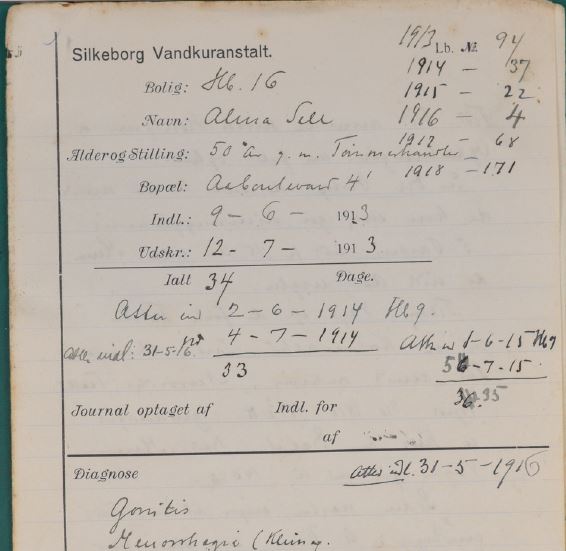 1913 Lb. № 94
Silkeborg Vandkuranstalt.
1914 – 37
Bolig: Hb. 16
1915 – 22
Navn: Alma Sell
1916 – 4
1917 – 68
Alder og Stilling: 50 Aar g. m. Tømmerhandler
1918 – 171
Bopæl: Aaboulevard 4'
Indl.: 9 – 6 – 1913
Udskr.: 12 – 7 – 1913
Ialt 34 Dage.
Atter in 2 – 6 – 1914 Hb 9.
4 – 7 – 1914
33
Atter indl: 31-5-16.
Atter in 1-6-15 Hb 9
-7-15.
35
Journal optaget af Indl. for
af
Diagnose Atter indl. 31-5-1916
Gonitis
Menorrhagia